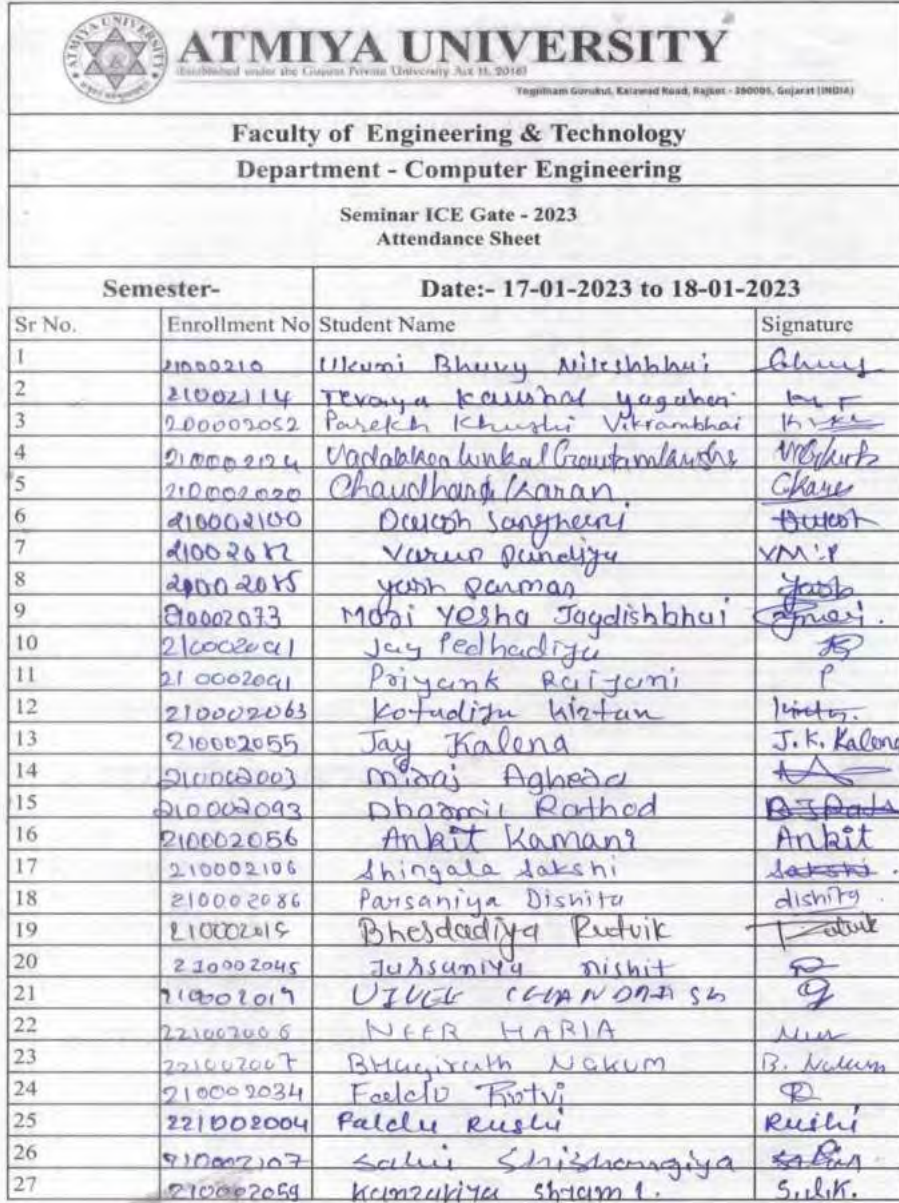 ATMIYA UNIVERSITY
ATMIYA UNIVERSITY
(Established under the Gujarat Private University Act 11, 2018)
Yogidham Gurukul, Kalawad Road, Rajkot - 360005, Gujarat (INDIA)
Faculty of Engineering & Technology
Department - Computer Engineering
Seminar ICE Gate - 2023
Attendance Sheet
Semester- Date:- 17-01-2023 to 18-01-2023
Sr No. Enrollment No Student Name Signature
1 21000210
2 21002114 Kaushal
3 200002052 Parekh Khushi Vikrambhai
4 210002124
5 210002020 Chaudhary Karan
6 210002100 Sanghani
7 21002082 Varun Pandiya VM.P
8 Yash Parmar Yash
9 210002073 Mori Yesha Jagdishbhai
10 Jay Pedhadiya
11 210002091 Priyank Raiyani P
12 210002063 Kotadiya Kirtan
13 210002055 Jay Kalena J.K. Kalena
14 210002003 Miraj Aghera
15 210002093 Dharmil Rathod
16 210002056 Ankit Kamani Ankit
17 210002106 Shingala Sakshi Sakshi
18 210002086 Parsaniya Dishita dishita
19 Bhesdadiya Rutvik Rutvik
20 210002045 Jursaniya nishit
21 210002019
22 221002006 NEER HARIA
23 221002007 Bhagirath Nakum B. Nakum
24 210002034
25 221002004 Paldu Rushi Rushi
26 210002107
27 210002059 Kamzariya Shyam